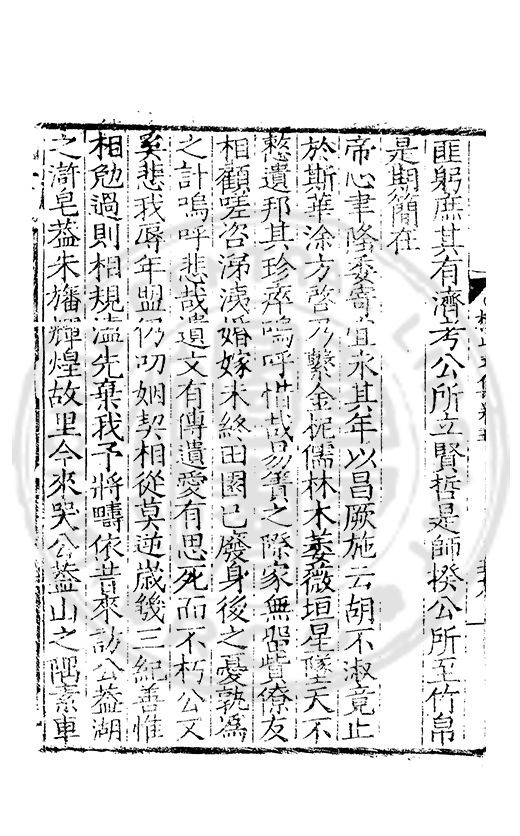 匪躬庶其有濟考公所立賢哲是師揆公所至竹帛
是期簡在
帝心聿隆委寄宜永其年以昌厥施云胡不淑竟止
於斯華涂方啓乃繫金柅儒林木萎薇垣星墜天不
憖遺邦其珍瘁嗚呼惜哉易簀之際家無罌貲僚友
相顧嗟咨涕洟婚嫁未終田園已廢身後之憂孰為
之計嗚呼悲哉遺文有傳遺愛有思死而不朽公又
奚悲我辱年盟仍叨姻契相從莫逆歲幾三紀善惟
相勉過則相規溘先棄我予將疇依昔來訪公葢湖
之滸皂葢朱旛輝煌故里今來哭公葢山之隅素車